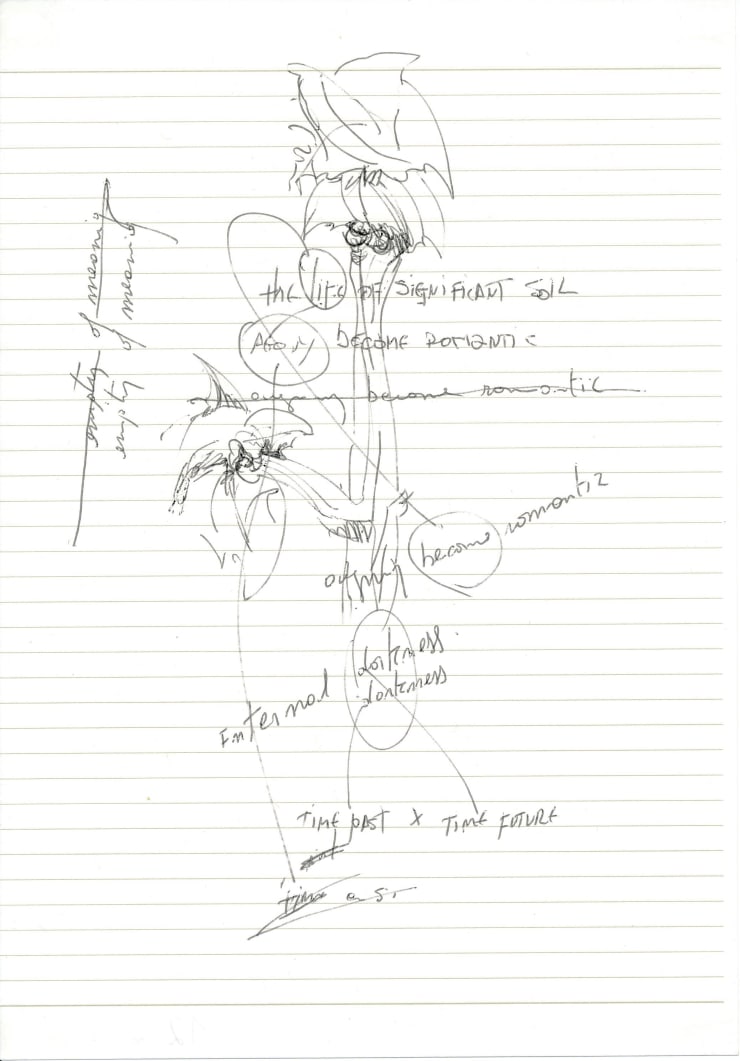 empty of meaning
empty of meaning
the life OF SIGNIFICANT SOIL
AGONY BECOME ROMANTIC
become romantic
become romantic
darkness
Internal darkness
TIME PAST X TIME FUTURE
time